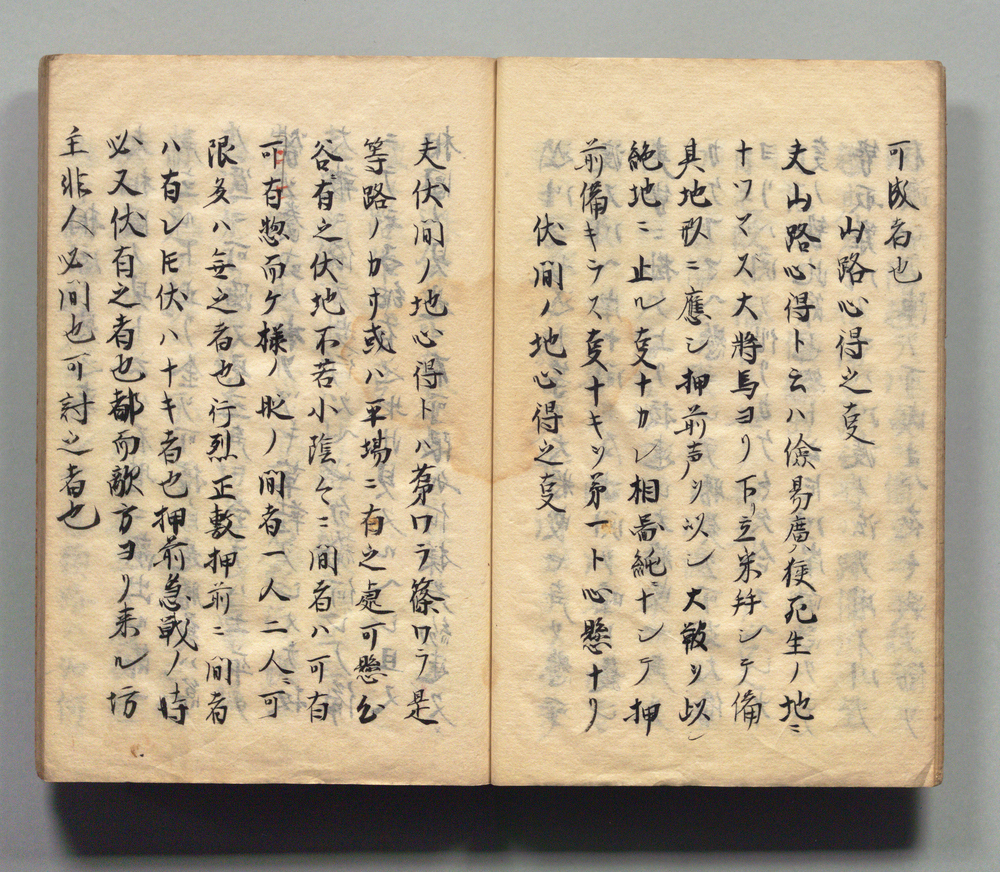 可成者也
山路心得之叓
夫山路心得ト云ハ儉易廣ハ狹死生ノ地ニ
十ワマズ大將馬ヨリ下リ立采幷シテ備
具地形ニ應シ押前声ヲ以シ大皷ヲ以シ
絶地ニ止ル叓ナカレ相啚純ニナシテ押
前備キラス叓ナキヲ第一ト心懸ナリ
伏間ノ地心得之叓
夫伏間ノ地心得トハ第ワラ篠ワラ是
等路ノカヤ或ハ平場ニ有之處可懸公
谷有之伏地不若小陰々ニ間者ハ可有
可有惣而ケ様ノ処ノ間者一人二人ニ可
限多ハ無之者也行烈正敷押前ニ間者
ハ有レ𪜈伏ハナキ者也押前急戰ノ時
必又伏有之者也都而敵方ヨリ来ル坊
主非人必間也可討之者也